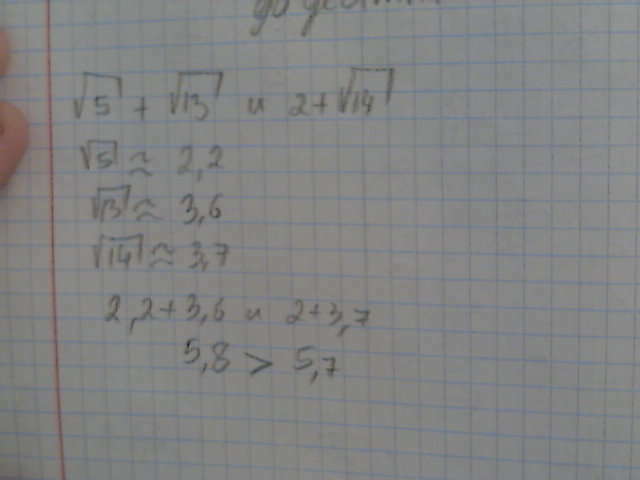 √5 + √13 и 2+√14
√5 ≈ 2,2
√13 ≈ 3,6
√14 ≈ 3,7
2,2+3,6 и 2+3,7
5,8 > 5,7